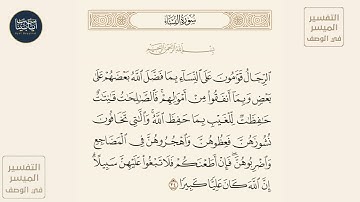 التفسير
الميسر
في الوصف
سورة النساء
بسم الله الرحمن الرحيم
ٱلرِّجَالُ قَوَّٰمُونَ عَلَى ٱلنِّسَآءِ بِمَا فَضَّلَ ٱللَّهُ بَعْضَهُمْ عَلَىٰ
بَعْضٍ وَبِمَآ أَنفَقُوا۟ مِنْ أَمْوَٰلِهِمْ ۚ فَٱلصَّٰلِحَٰتُ قَٰنِتَٰتٌ
حَٰفِظَٰتٌ لِّلْغَيْبِ بِمَا حَفِظَ ٱللَّهُ ۚ وَٱلَّٰتِى تَخَافُونَ
نُشُوزَهُنَّ فَعِظُوهُنَّ وَٱهْجُرُوهُنَّ فِى ٱلْمَضَاجِعِ
وَٱضْرِبُوهُنَّ ۖ فَإِنْ أَطَعْنَكُمْ فَلَا تَبْغُوا۟ عَلَيْهِنَّ سَبِيلًا ۗ
إِنَّ ٱللَّهَ كَانَ عَلِيًّا كَبِيرًا ٣٤
التفسير
الميسر
في الوصف